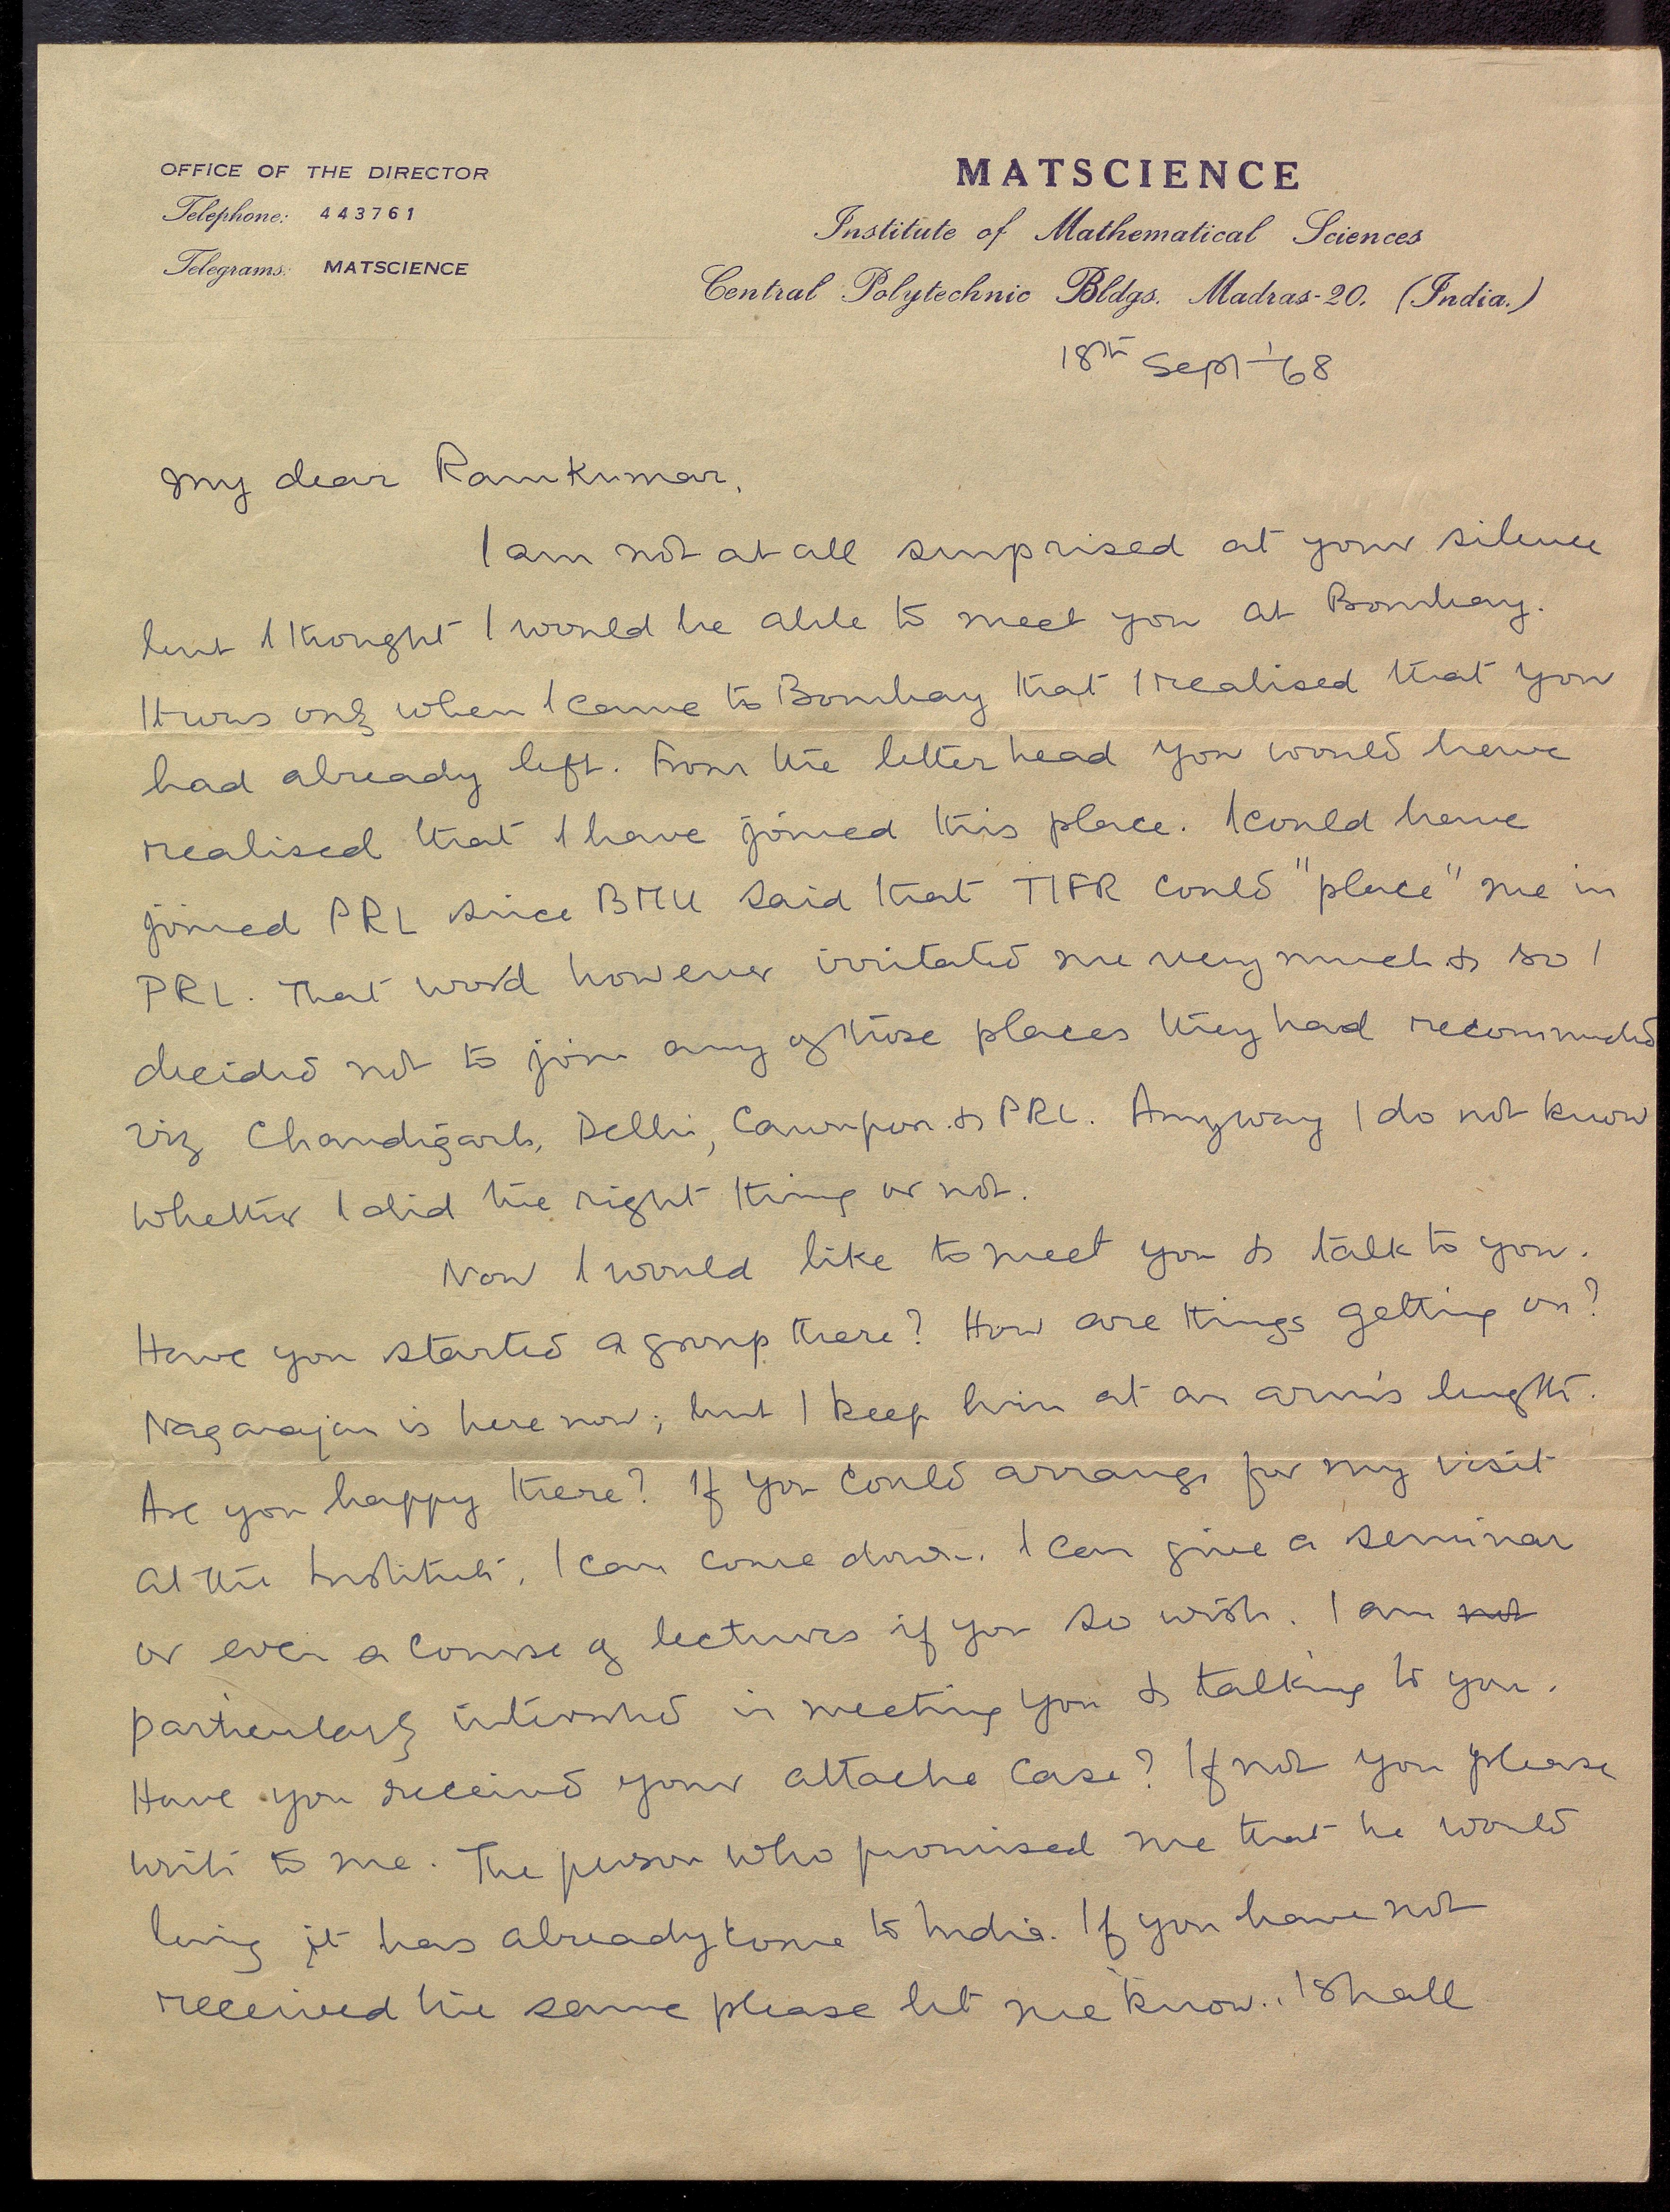 OFFICE OF THE DIRECTOR
Telephone: 443761
Telegrams: MATSCIENCE
MATSCIENCE
Institute of Mathematical Sciences
Central Polytechnic Bldgs. Madras-20. (India.)
18th Sept '68
My dear Ramkumar,
I am not at all surprised at your silence
but I thought I would be able to meet you at Bombay.
It was only when I came to Bombay that I realised that you
had already left. From the letter head you would have
realised that I have joined this place. I could have
joined PRL since BMU said that TIFR could "place" me in
PRL. That word however irritated me very much & so I
decided not to join any of those places they had recommended
viz Chandigarh, Delhi, Cawnpur & PRL. Anyway I do not know
whether I did the right thing or not.
Now I would like to meet you & talk to you.
Have you started a group there? How are things getting on?
Nagarajan is here now; but I keep him at an arm's length.
Are you happy there? If you could arrange for my visit
at the Institute, I can come down. I can give a seminar
or even a course of lectures if you so wish. I am not
particularly interested in meeting you & talking to you.
Have you received your attache case? If not you please
write to me. The person who promised me that he would
bring it has already come to India. If you have not
received the same please let me know. I shall